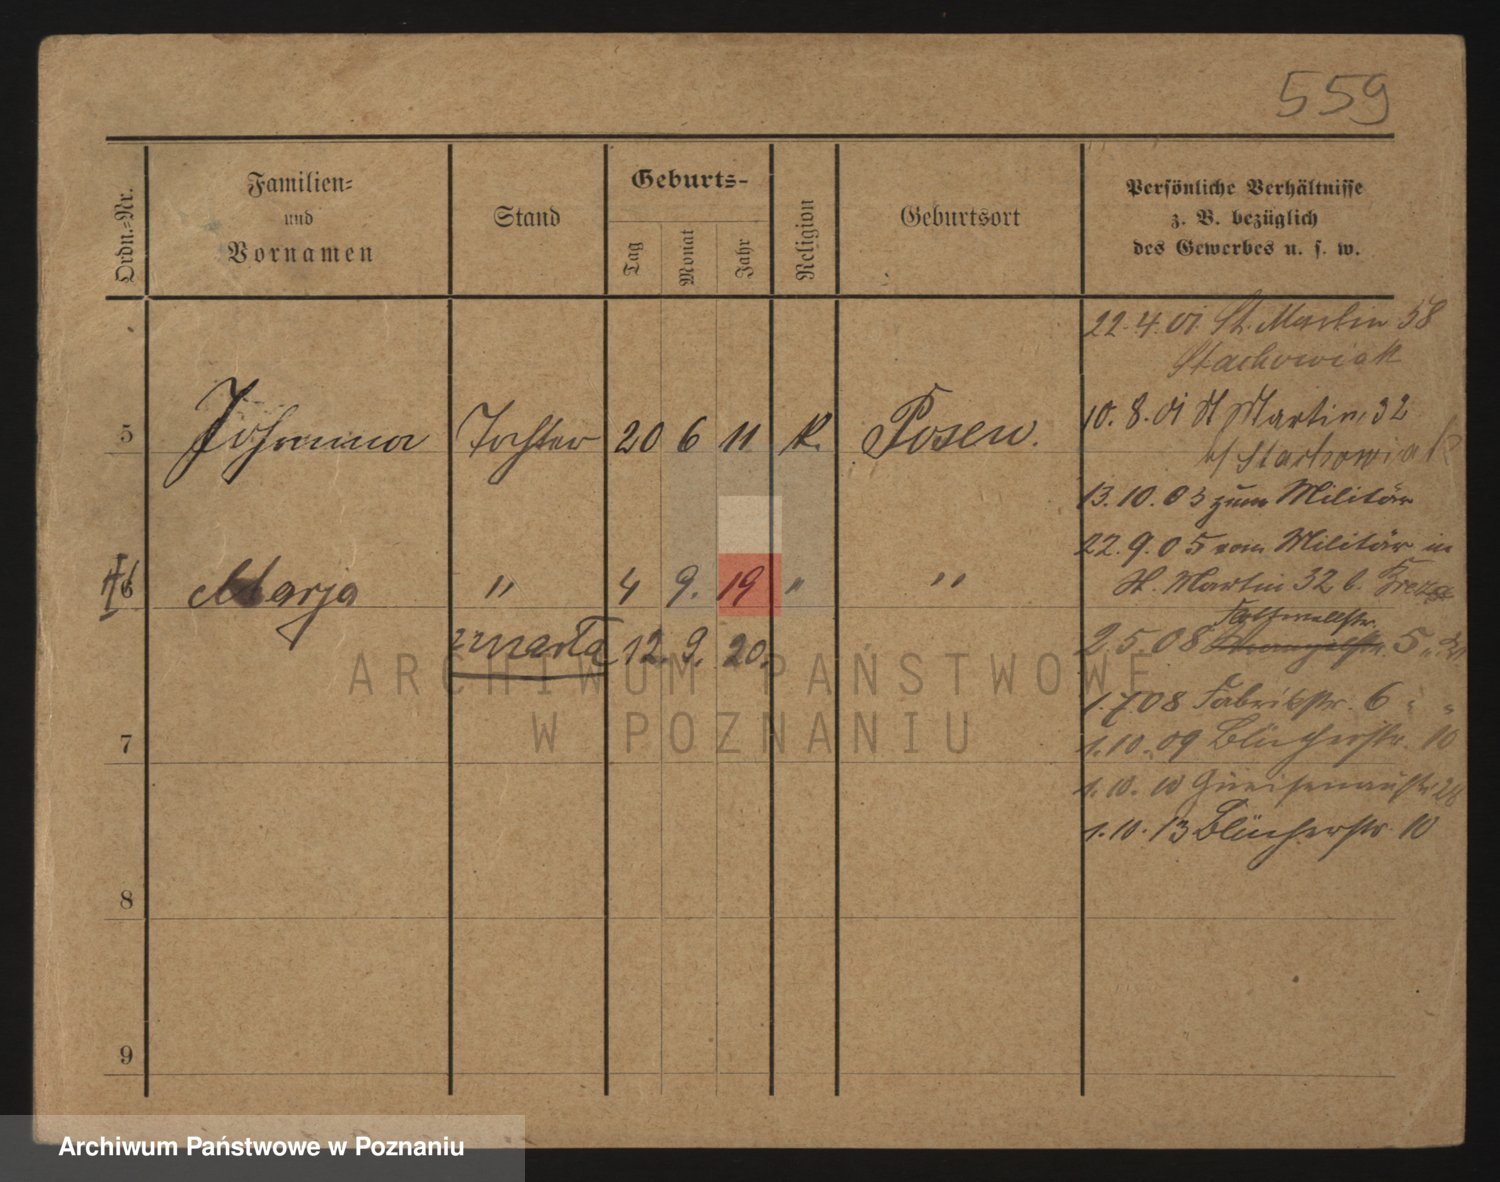 559
Ordn.-Nr.
Familien-
und
Vornamen
Stand
Geburts-
Tag
Monat
Jahr
Religion
Geburtsort
Persönliche Verhältnisse
z. B. bezüglich
des Gewerbes u. s. w.
22.4.01 St. Martin 58
Stachowiak
5 Johanna Tochter 20 6 11 k. Posen.
10.8.01 St Martin 32
b/ Stachowiak
13.10.03 zum Militär
22.9.05 vom Militär in
St. Martin 32 b.
6 Marja " 4 9. 19 " "
zmarła 12. 9. 20.
2.5.08 5
1.7.08 Fabrikstr. 6 " "
1.10.09 Blücherstr. 10
1.10.10 Gneisenaustr 28
1.10.13 Blücherstr. 10
7
8
9
ARCHIWUM PAŃSTWOWE
W POZNANIU
Archiwum Państwowe w Poznaniu